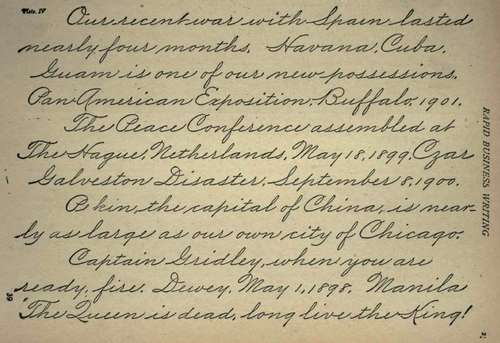 Plate IV
Our recent war with Spain lasted
nearly four months. Havana, Cuba.
Guam is one of our new possessions.
Pan American Exposition. Buffalo, 1901.
The Peace Conference assembled at
The Hague, Netherlands, May 18, 1899. Czar
Galveston Disaster, September 8, 1900.
Pekin, the capital of China, is near-
ly as large as our own city of Chicago.
Captain Gridley, when you are
ready, fire. Dewey, May 1, 1898. Manila
"The Queen is dead, long live the King!
RAPID BUSINESS WRITING
39